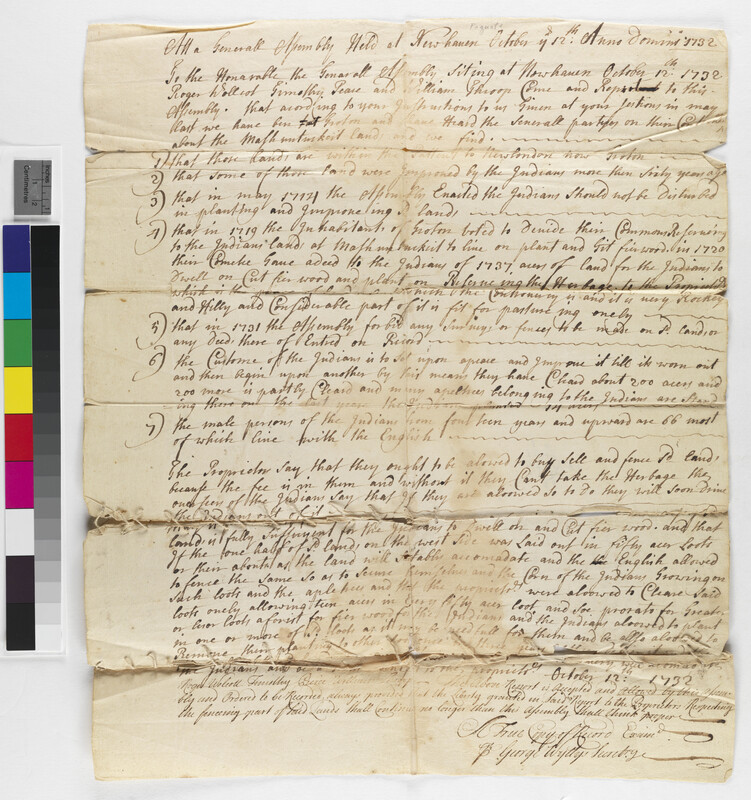 Att a Generall Assembly Held at Newhaven October ye 12th: Anno Domini 1732
To the Honarable the Generall Assembly Siting at Newhaven October 12th 1732
Roger Wollcot Timothy Peace and William Throop Come and Report to this
Assembly. that acording to your Instructions to us Given at your sessions in may
last we have ben at Groton and have Heard the Severall partyes on their
about the Mashuntuckeit Lands and we find.
1) that those Lands are within the to Newlondon now Groton
2) that Some of those Land were Improved by the Indians more then Sixty years ago
3) that in may 1714 the Assembly Enacted the Indians Should not be Disturbed
in planting and Improveing Sd lands
4) that in 1719 the Inhabitants of Groton voted to Devide their Commons Reserving
to the Indians Lands at Mashuntuckit to live on plant and Git fierwood. in 1720
their Comete Gave a deed to the Indians of 1737 acers of land for the Indians to
Dwell on Cut fier wood and plant on Reserveing the Herbage to the Proprietors
which is the land which the Controversy is and it is very Rockey
and Hilly and Considerable part of it is fit for pastureing onely
5) that in 1731 the Assembly forbid any Surveys or fences to be made on Sd Lands or
any Deed there of Entred on Record
6) the Custome of the Indians is to Set upon a peace and Improve it till its worn out
and then begin upon another by this means they have Cleard about 200 acers and
200 more is partly Cleard and many apeltrees belonging to the Indians are Stand
ing there on the last year the Indians planted acers
7) the male persons of the Indians from fourteen years and upward are 66 most
of which live with the English
The Proprietors Say that they ought to be alowed to buy Sell and fence Sd Lands
because the fee is in them and without it they Cant take the Herbage the
overseers of the Indians Say that If they are allowed So to Do they will Soon Drive
the Indians out of it
Land is fully Sufficient for the Indians to Dwell on and Cut fier wood. and that
If the one half of Sd Lands on the west Side was Laid out in fifty acer Loots
or their abouts as the land will Sutable accomadate and the English allowed
to fence the Same So as to Secure themselves and the Corn of the Indians Growing on
Such loots and the apletrees and that the proprietors were alowed to Cleare Said
loots onely allowing ten acers in Every fifty acer loot and Soe prorato for Greater
or leser loots aforest for fier wood for the Indians and the Indians alowed to plant
in one or more of Sd loots as it may be needfull for them and be allso alowed to
Remove their planting to other
the Indians
October 12: 1732
Roger Wolcott Timothy Peirce William Throop Report is accepted and allowed by this Assem
bly and Ordered to be Recorded, always provided that the Liberty granted in Said Report to the Proprietors Respecting
the fenceing part of Said Lands shall Continue no longer than this Assembly shall think proper
A True Copy of Record Examd
Pr George Wyllys Secretry
Centimetres
Inches